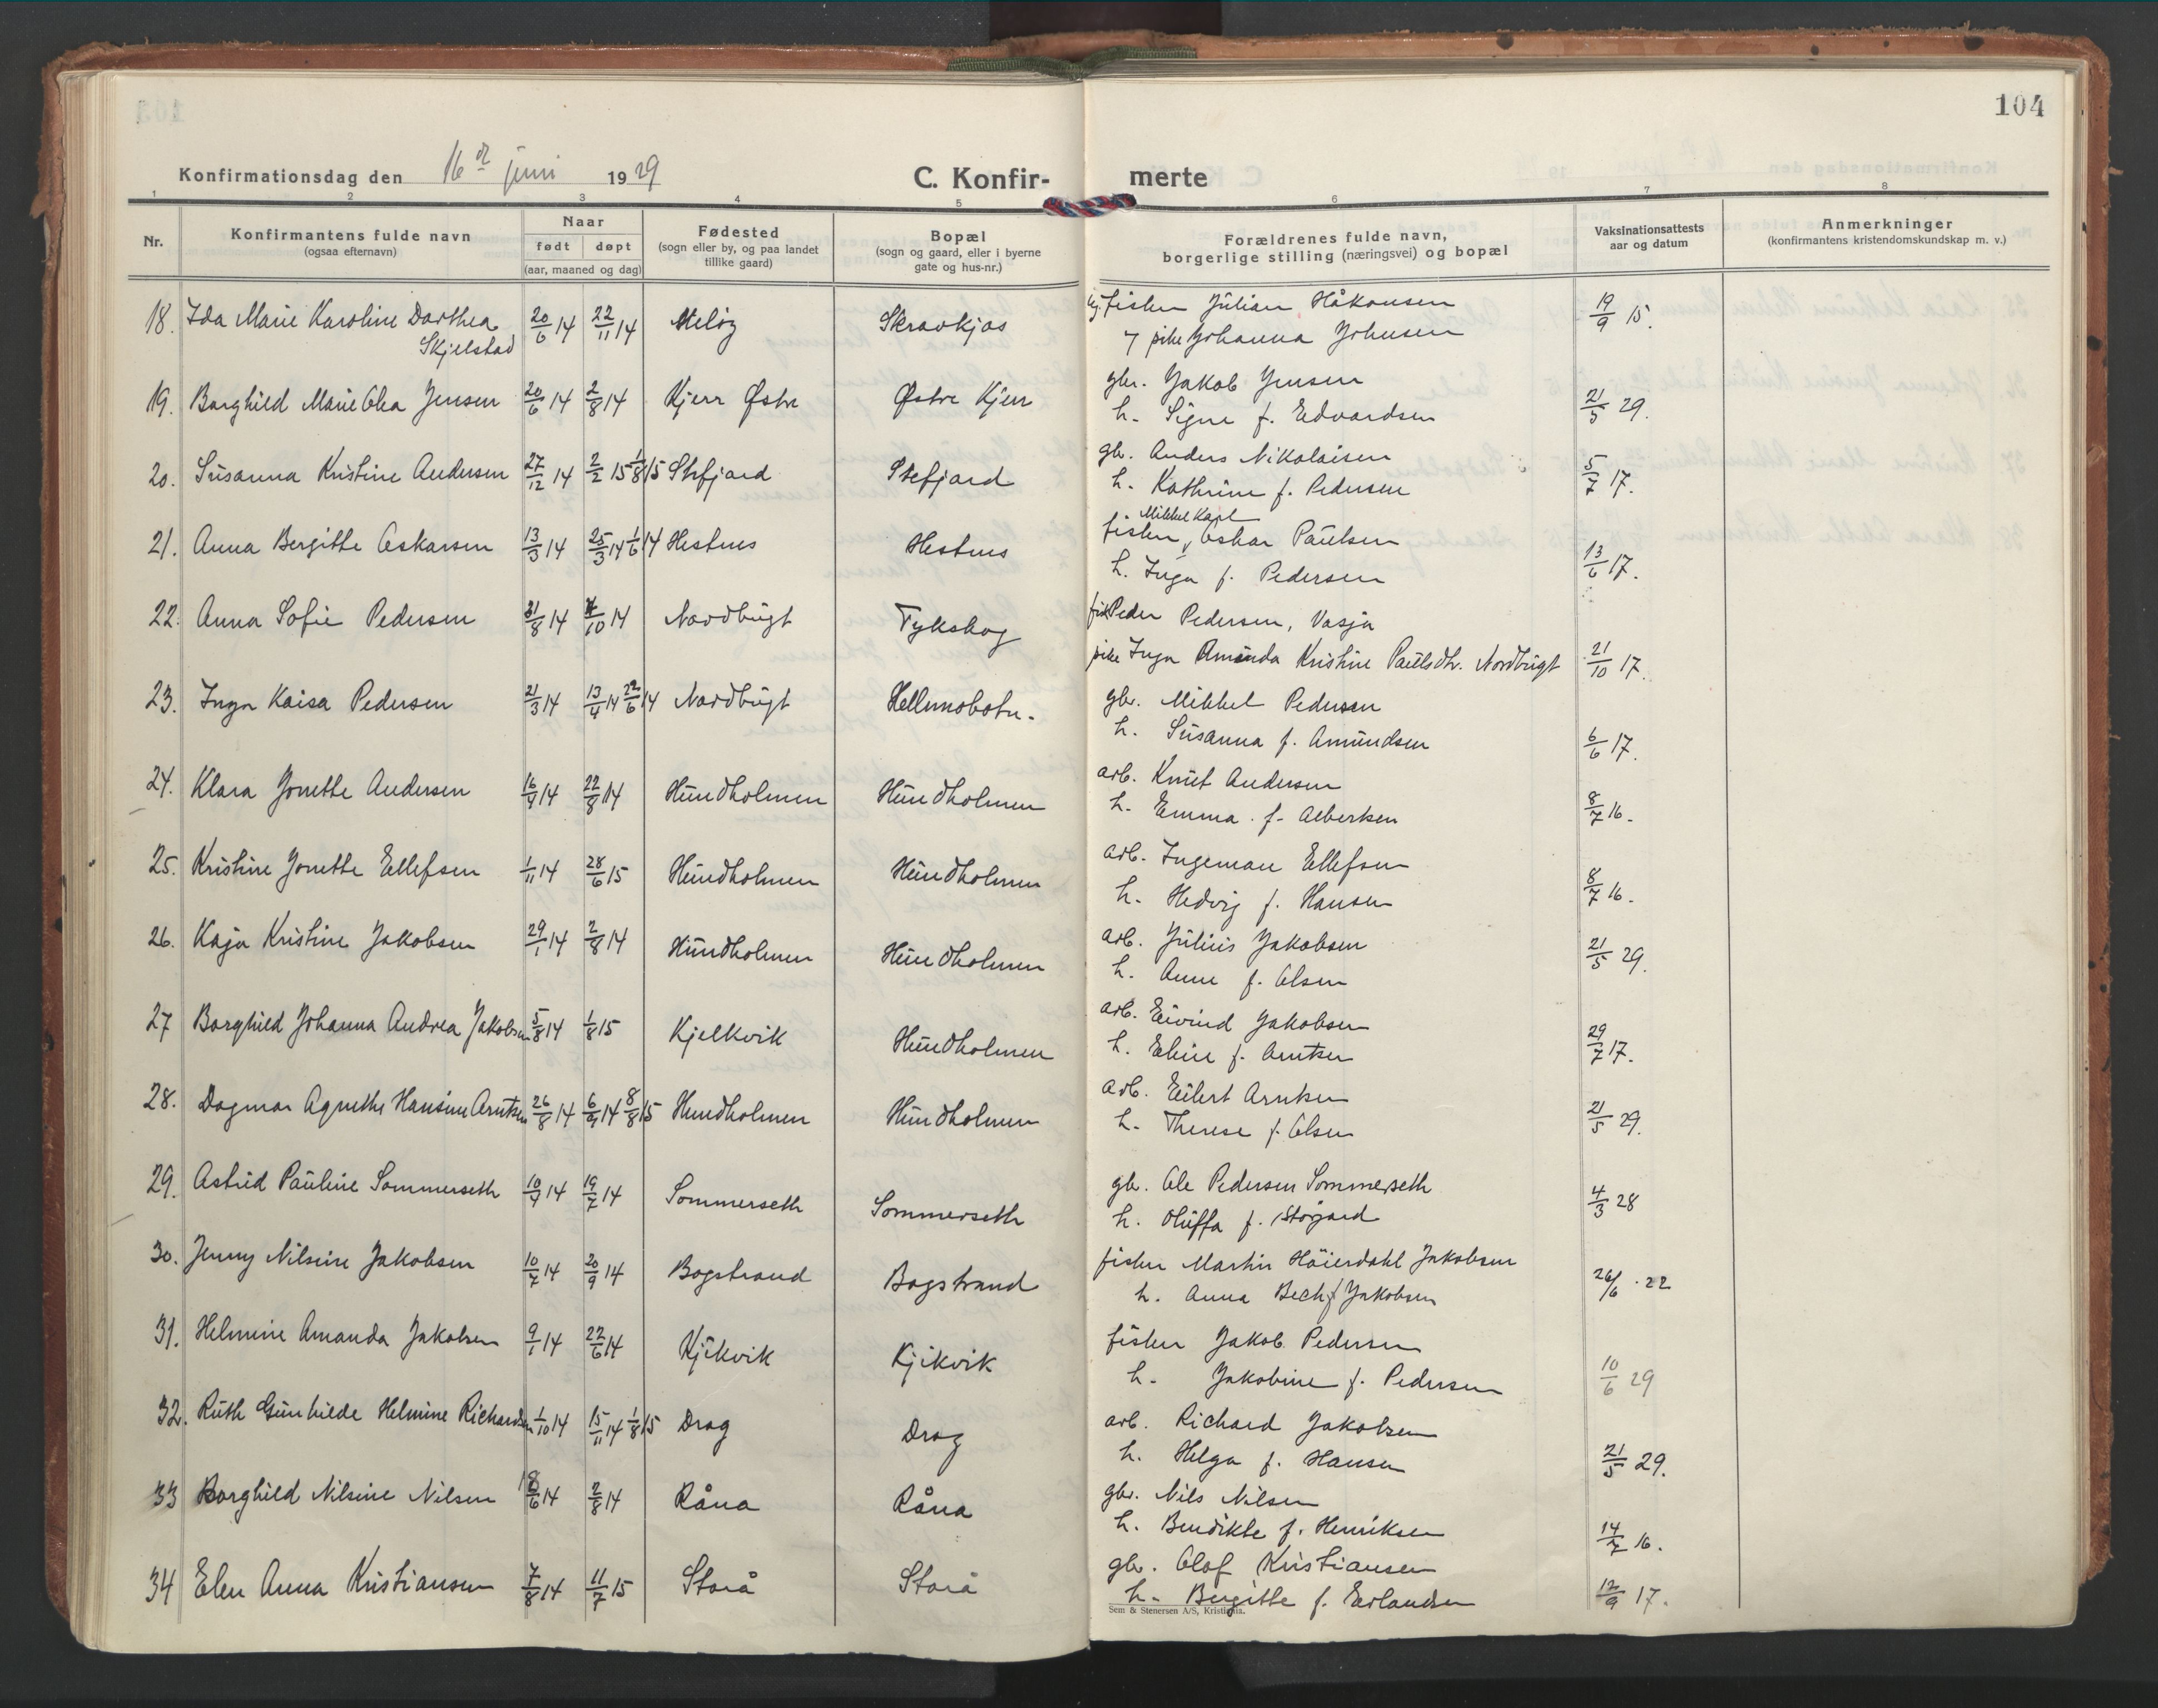 104
Konfirmationsdag den 16de juni 1929
C. Konfir- merte
1 2 3 4 5 6 7 8
Nr. Konfirmantens fulde navn (ogsaa efternavn) Naar født døpt (aar, maaned og dag) Fødested (sogn eller by, og paa landet tillike gaard) Bopæl (sogn og gaard, eller i byerne gate og hus-nr.) Forældrenes fulde navn, borgerlige stilling (næringsvei) og bopæl Vaksinationsattests aar og datum Anmerkninger (konfirmantens kristendomskundskap m. v.)
18. Ida Marie Karoline Dorthea Skjelstad 20/6 14 22/11 14 Meløy Skravkjos fisker Julian Håkonsen 19/9 15.
7 pike Johanna Johnsen
19. Borghild Marie Olea Jensen 20/6 14 2/8 14 Kjerr Østre Østre Kjerr gbr. Jakob Jensen 21/5 29.
h. Signe f. Edvardsen
20. Susanna Kristine Andersen 27/12 14 2/2 15 1/8 15 Stefjord Stefjord gbr. Anders Nikolaisen 5/7 17.
h. Kathrine f. Pedersen
21. Anna Bergitte Oskarsen 13/3 14 25/3 14 1/6 14 Hestnes Hestnes fisker Mikkel Karl Oskar Paulsen 13/6 17.
h. Inga f. Pedersen
22. Anna Sofie Pedersen 31/8 14 4/10 14 Nordbugt Tykskog fisk Peder Pedersen, Vasja
pike Inga Aminda Kristine Paulsdtr. Nordbugt 21/10 17.
23. Inga Kaisa Pedersen 21/3 14 13/4 14 22/6 14 Nordbugt Hellmobotn. gbr. Mikkel Pedersen
h. Susanna f. Amundsen 6/6 17.
24. Klara Jonette Andersen 16/4 14 22/8 14 Hundholmen Hundholmen arb. Knut Andersen
h. Emma f. Albertsen 8/7 16.
25. Kristine Jonette Ellefsen 1/11 14 28/6 15 Hundholmen Hundholmen arb. Ingeman Ellefsen
h. Hedvig f. Hansen 8/7 16.
26. Kaja Kristine Jakobsen 29/1 14 2/8 14 Hundholmen Hundholmen arb. Julius Jakobsen 21/5 29.
h. Anne f. Olsen
27 Borghild Johanna Andrea Jakobsen 5/8 14 1/8 15 Kjelkvik Hundholmen arb. Eivind Jakobsen
h. Eline f. Arntsen 29/7 17.
28. Dagmar Agnethe Hansine Arntsen 26/8 14 6/9 14 8/8 15 Hundholmen Hundholmen arb. Eilert Arntsen 21/5 29.
h. Therese f. Olsen
29. Astrid Pauline Sommerseth 10/4 14 19/7 14 Sommerseth Sommerseth gbr. Ole Pedersen Sommerseth 4/3 28
h. Oluffa f. Storjord
30. Jenny Nilsine Jakobsen 10/7 14 20/9 14 Bogstrand Bogstrand fisker Martin Höierdahl Jakobsen 26/6 22
h. Anna Bech f Jakobsen
31. Helmine Amanda Jakobsen 9/1 14 22/6 14 Kjikvik Kjikvik fisker Jakob Pedersen
h. Jakobine f. Pedersen 10/6 29
32. Ruth Gunhilde Helmine Richardsen 1/10 14 15/11 14 1/8 15 Drag Drag arb. Richard Jakobsen
h. Helga f. Hansen 21/5 29.
33 Borghild Nilsine Nilsen 18/6 14 2/8 14 Råna Råna gbr. Nils Nilsen
h. Bendikte f. Henriksen 14/7 16.
34 Elen Anna Kristiansen 7/8 14 11/7 15 Storå Storå gbr. Olof Kristiansen
h. Bergitte f. Erlandsen 12/9 17.
Sem & Stenersen A/S, Kristiania.